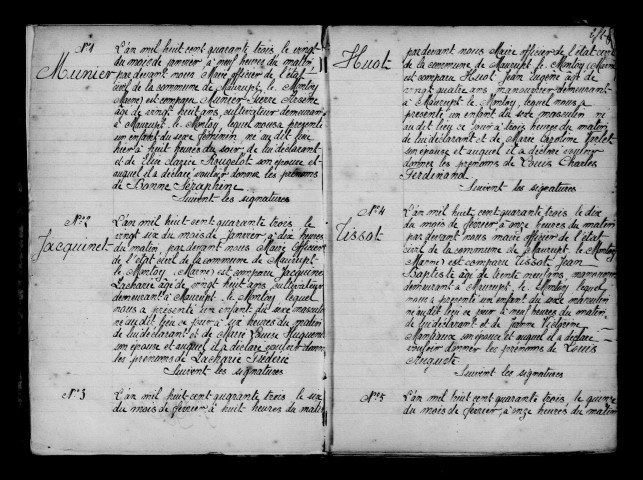 N°1
Munier
L'an mil huit cent quarante trois le vingt
du mois de janvier à neuf heures du matin
par devant nous Maire officier de l'état
civil de la commune de Maurupt, le Montoy
(Marne) est comparu Munier Pierre Arsène
âgé de vingt huit ans, cultivateur demeurant
à Maurupt, le Montoy, lequel nous a présenté
un enfant du sexe féminin, né au dit lieu
hier à huit heures du soir de lui déclarant
et de son épouse et
auquel il a déclaré vouloir donner les prénoms
de Séraphine
Suivent les signatures
N°2
Jacquinet
L'an mil huit cent quarante trois le
vingt six du mois de Janvier à dix heures
du matin, par devant nous Maire Officier
de l'état civil de la commune de Maurupt
le Montoy, (Marne) est comparu Jacquinet
Zacharie âgé de vingt huit ans, cultivateur
demeurant à Maurupt, le Montoy lequel
nous a présenté un enfant du sexe masculin
né au dit lieu ce jour à six heures du matin
de lui déclarant et de Marie Louise
son épouse et auquel il a déclaré vouloir donner
les prénoms de Zacharie Frédéric
Suivent les signatures
N°3
L'an mil huit cent quarante trois, le six
du mois de février à huit heures du matin
Huot
par devant nous Maire officier de l'état civil
de la commune de Maurupt, le Montoy (Marne)
est comparu Huot Jean Eugène âgé de
vingt quatre ans, manouvrier demeurant
à Maurupt le Montoy, lequel nous a
présenté un enfant du sexe masculin né
au dit lieu ce jour à trois heures du matin
de lui déclarant et de Marie Caroline
son épouse et auquel il a déclaré vouloir
donner les prénoms de Louis Charles
Ferdinand
Suivent les signatures
N°4
Tissot
L'an mil huit cent quarante trois le dix
du mois de février à onze heures du matin
par devant nous maire officier de l'état
civil de la commune de Maurupt, le Montoy
(Marne) est comparu Tissot Jean
Baptiste âgé de trente neuf ans, manouvrier
demeurant à Maurupt, le Montoy lequel
nous a présenté un enfant du sexe masculin
né au dit lieu ce jour à neuf heures du matin
de lui déclarant et de Jeanne
son épouse et auquel il a déclaré
vouloir donner les prénoms de Louis
Auguste
Suivent les signatures
N°5
L'an mil huit cent quarante trois, le quinze
du mois de février, à onze heures du matin